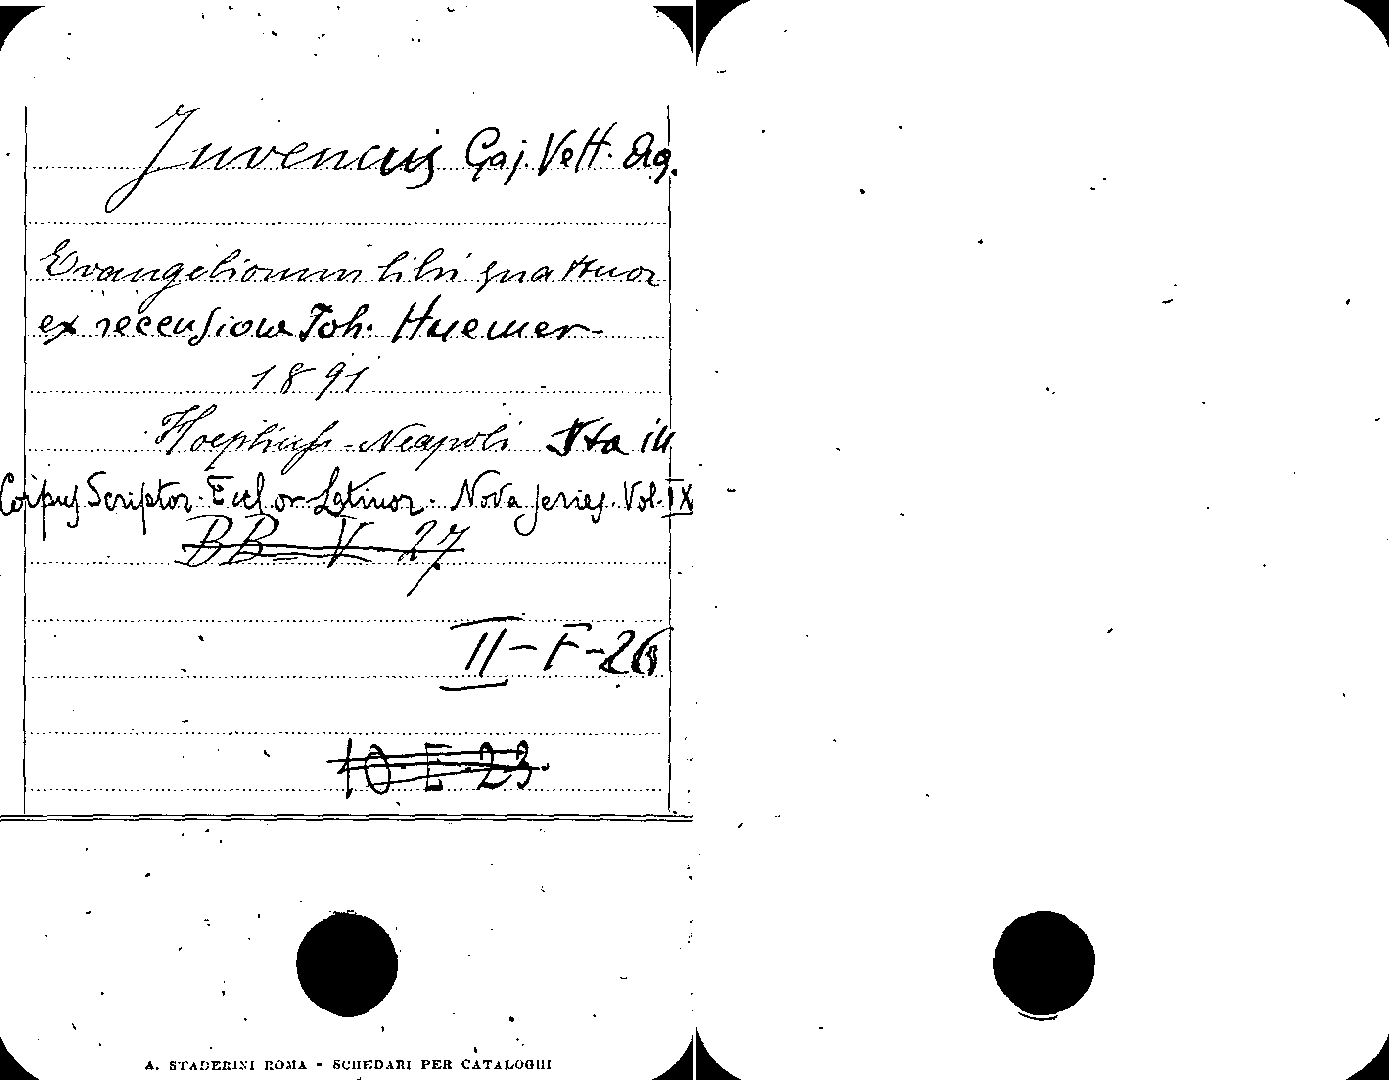 Juvencus Gaj. Vett. Aq.
Evangeliorum libri quattuor
ex recensione Joh. Huemer
1891
Hoeplius - Neapoli Sta in
Corpus Scriptor. Eccl or Latinor. Nova series. Vol. IX
BB - V 27
II - F - 26
10 - E - 23.
A. STADERINI ROMA - SCHEDARI PER CATALOGHI